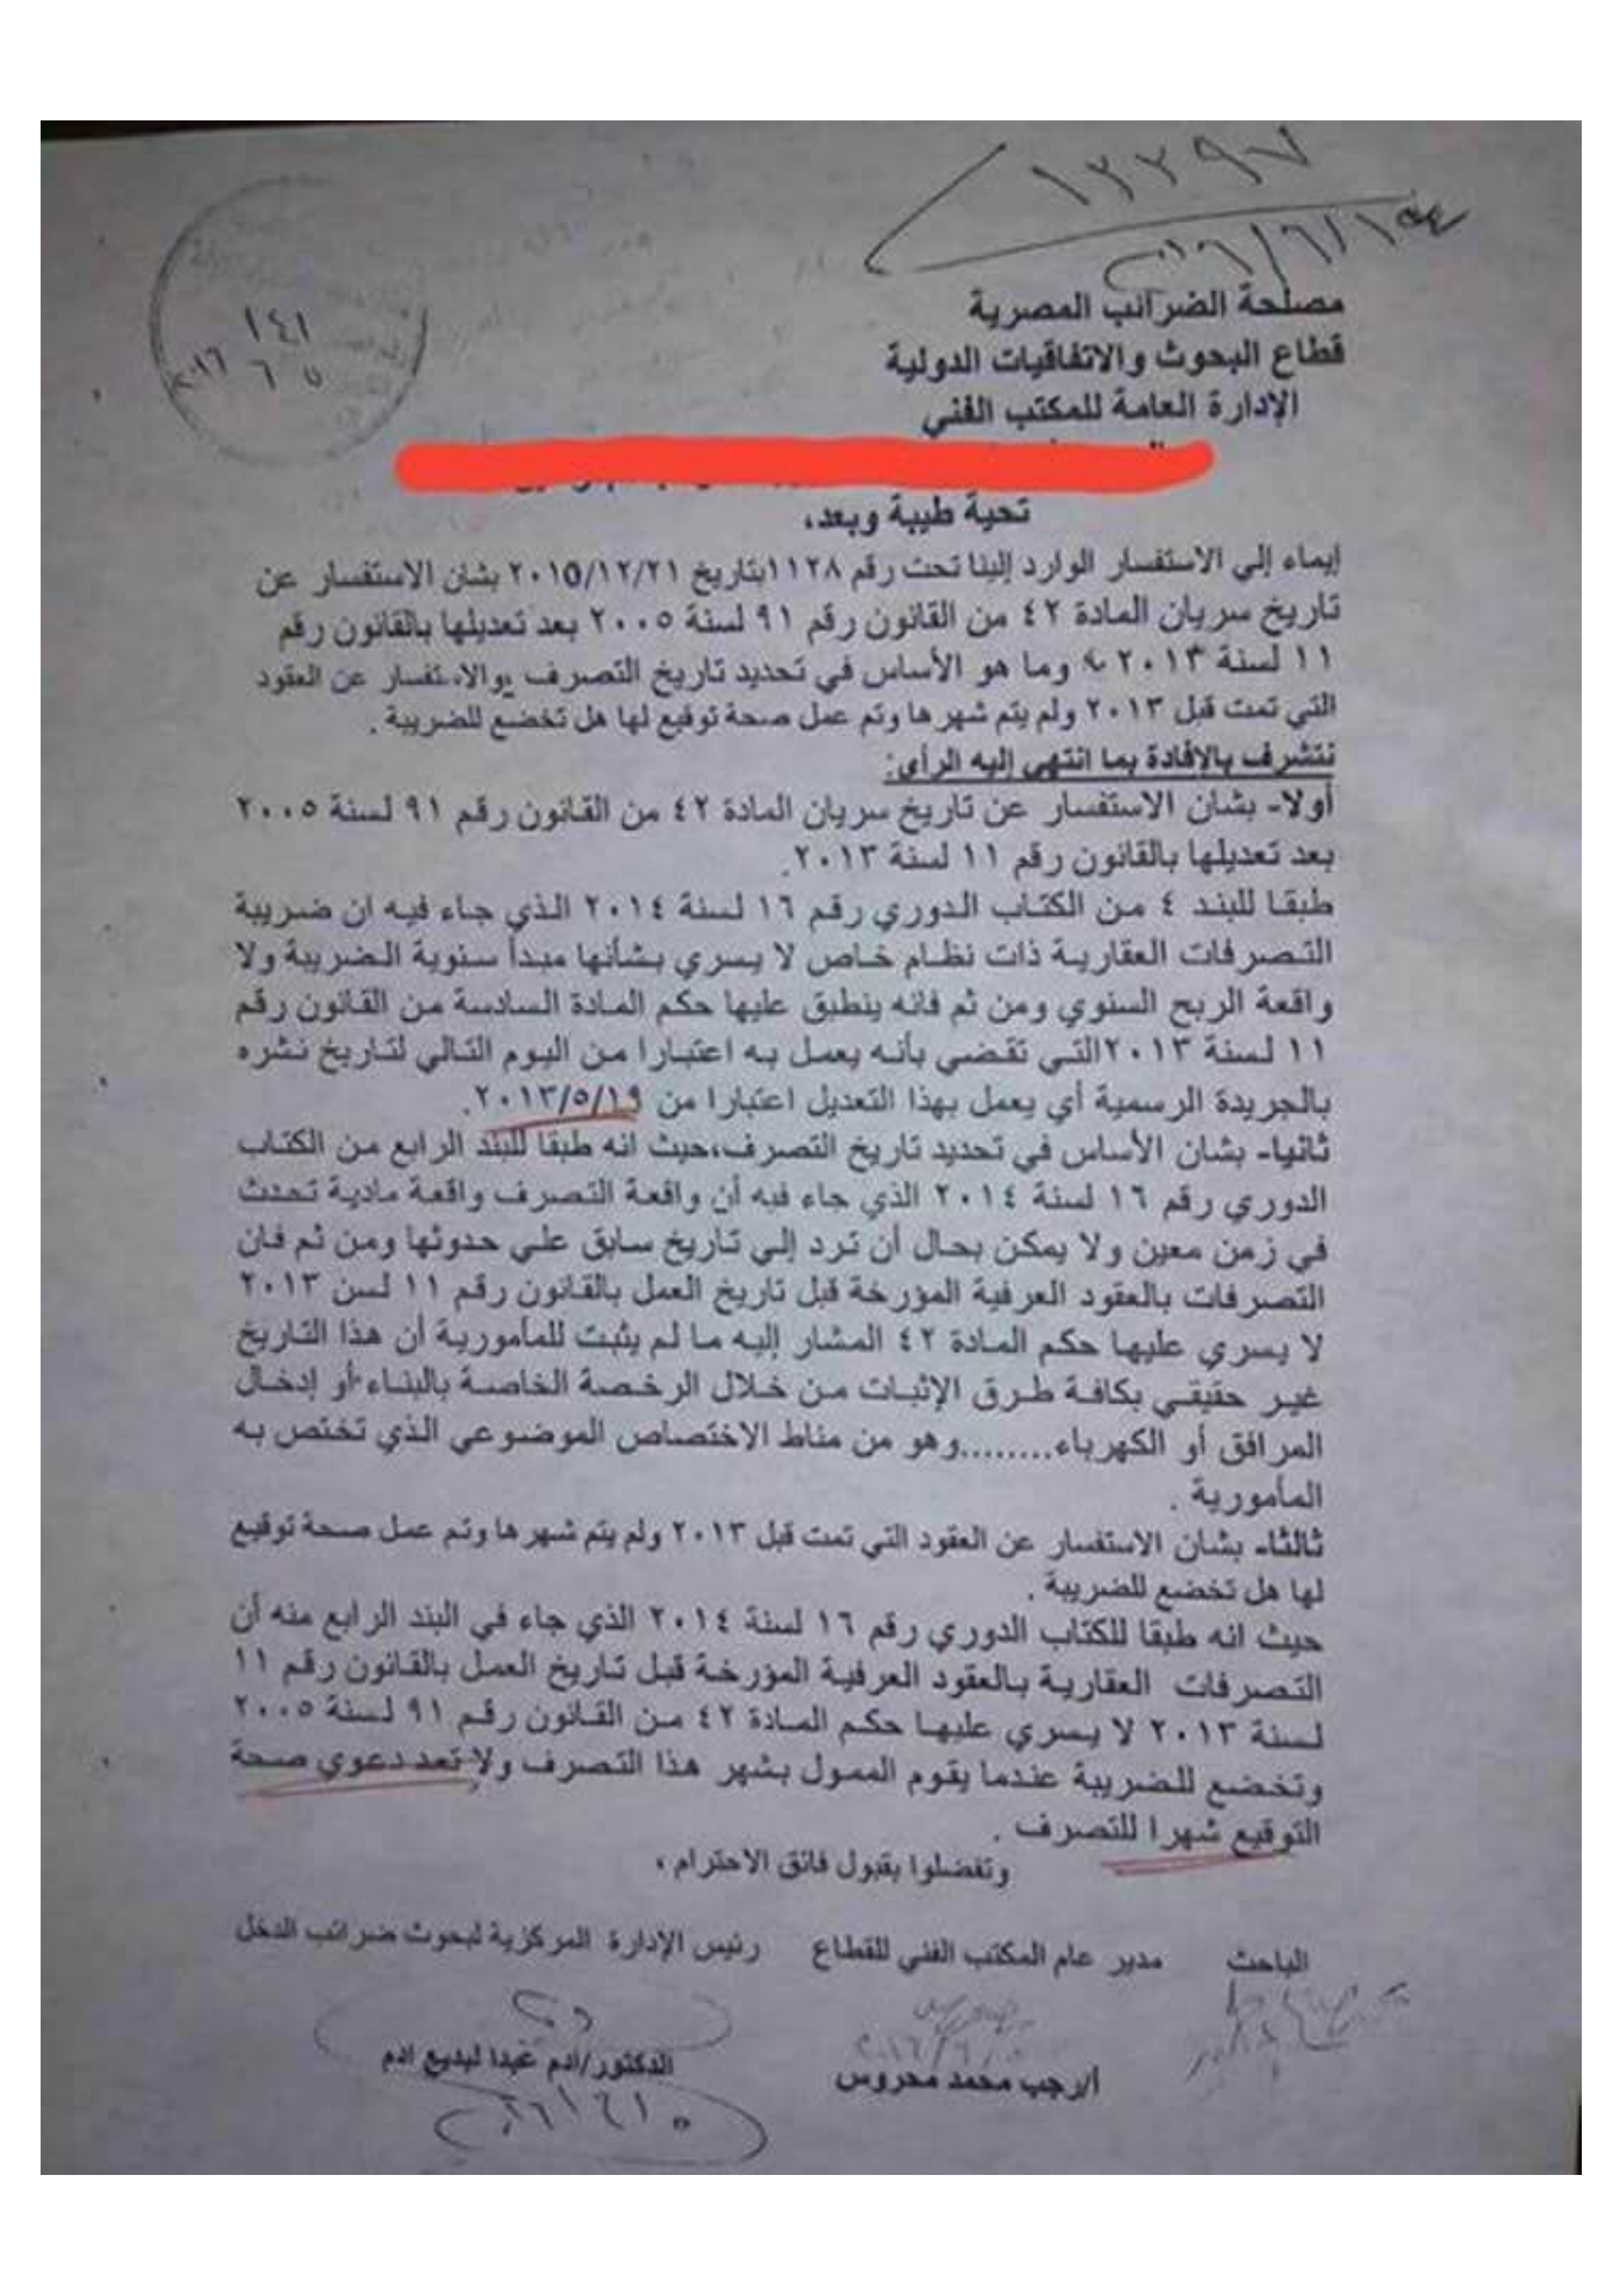 ١٢٢٩٧
١٤١
٥ ٦ ٢٠١٦
مصلحة الضرائب المصرية
قطاع البحوث والاتفاقيات الدولية
الإدارة العامة للمكتب الفني
تحية طيبة وبعد،
إيماء إلي الاستفسار الوارد إلينا تحت رقم ١١٢٨بتاريخ ٢٠١٥/١٢/٢١ بشان الاستفسار عن
تاريخ سريان المادة ٤٢ من القانون رقم ٩١ لسنة ٢٠٠٥ بعد تعديلها بالقانون رقم
١١ لسنة ٢٠١٣ وما هو الأساس في تحديد تاريخ التصرف والاستفسار عن العقود
التي تمت قبل ٢٠١٣ ولم يتم شهرها وتم عمل صحة توقيع لها هل تخضع للضريبة .
نتشرف بالإفادة بما انتهي إليه الرأي:
أولا- بشان الاستفسار عن تاريخ سريان المادة ٤٢ من القانون رقم ٩١ لسنة ٢٠٠٥
بعد تعديلها بالقانون رقم ١١ لسنة ٢٠١٣.
طبقا للبند ٤ من الكتاب الدوري رقم ١٦ لسنة ٢٠١٤ الذي جاء فيه ان ضريبة
التصرفات العقارية ذات نظام خاص لا يسري بشأنها مبدأ سنوية الضريبة ولا
واقعة الربح السنوي ومن ثم فانه ينطبق عليها حكم المادة السادسة من القانون رقم
١١ لسنة ٢٠١٣التي تقضي بأنه يعمل به اعتبارا من اليوم التالي لتاريخ نشره
بالجريدة الرسمية أي يعمل بهذا التعديل اعتبارا من ٢٠١٣/٥/١٩.
ثانيا- بشان الأساس في تحديد تاريخ التصرف،حيث انه طبقا للبند الرابع من الكتاب
الدوري رقم ١٦ لسنة ٢٠١٤ الذي جاء فيه أن واقعة التصرف واقعة مادية تحدث
في زمن معين ولا يمكن بحال أن ترد إلي تاريخ سابق علي حدوثها ومن ثم فان
التصرفات بالعقود العرفية المؤرخة قبل تاريخ العمل بالقانون رقم ١١ لسن ٢٠١٣
لا يسري عليها حكم المادة ٤٢ المشار إليه ما لم يثبت للمأمورية أن هذا التاريخ
غير حقيقي بكافة طرق الإثبات من خلال الرخصة الخاصة بالبناء أو إدخال
المرافق أو الكهرباء........وهو من مناط الاختصاص الموضوعي الذي تختص به
المأمورية .
ثالثا- بشان الاستفسار عن العقود التي تمت قبل ٢٠١٣ ولم يتم شهرها وتم عمل صحة توقيع
لها هل تخضع للضريبة .
حيث انه طبقا للكتاب الدوري رقم ١٦ لسنة ٢٠١٤ الذي جاء في البند الرابع منه أن
التصرفات العقارية بالعقود العرفية المؤرخة قبل تاريخ العمل بالقانون رقم ١١
لسنة ٢٠١٣ لا يسري عليها حكم المادة ٤٢ من القانون رقم ٩١ لسنة ٢٠٠٥
وتخضع للضريبة عندما يقوم الممول بشهر هذا التصرف ولا تعد دعوي صحة
التوقيع شهرا للتصرف .
وتفضلوا بقبول فائق الاحترام ،
الباحث مدير عام المكتب الفني للقطاع رئيس الإدارة المركزية لبحوث ضرائب الدخل
أ/رجب محمد محروس
الدكتور/ادم عبدا لبديع ادم